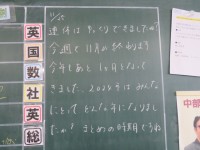 11/25
連休はゆっくりできましたか?
今週で11月が終わります
今年もあと1ヶ月となって
きました。2024年はみんな
にとってどんな年になりまし
たか? まとめの時期ですね
英
国
数
社
英
総
中部